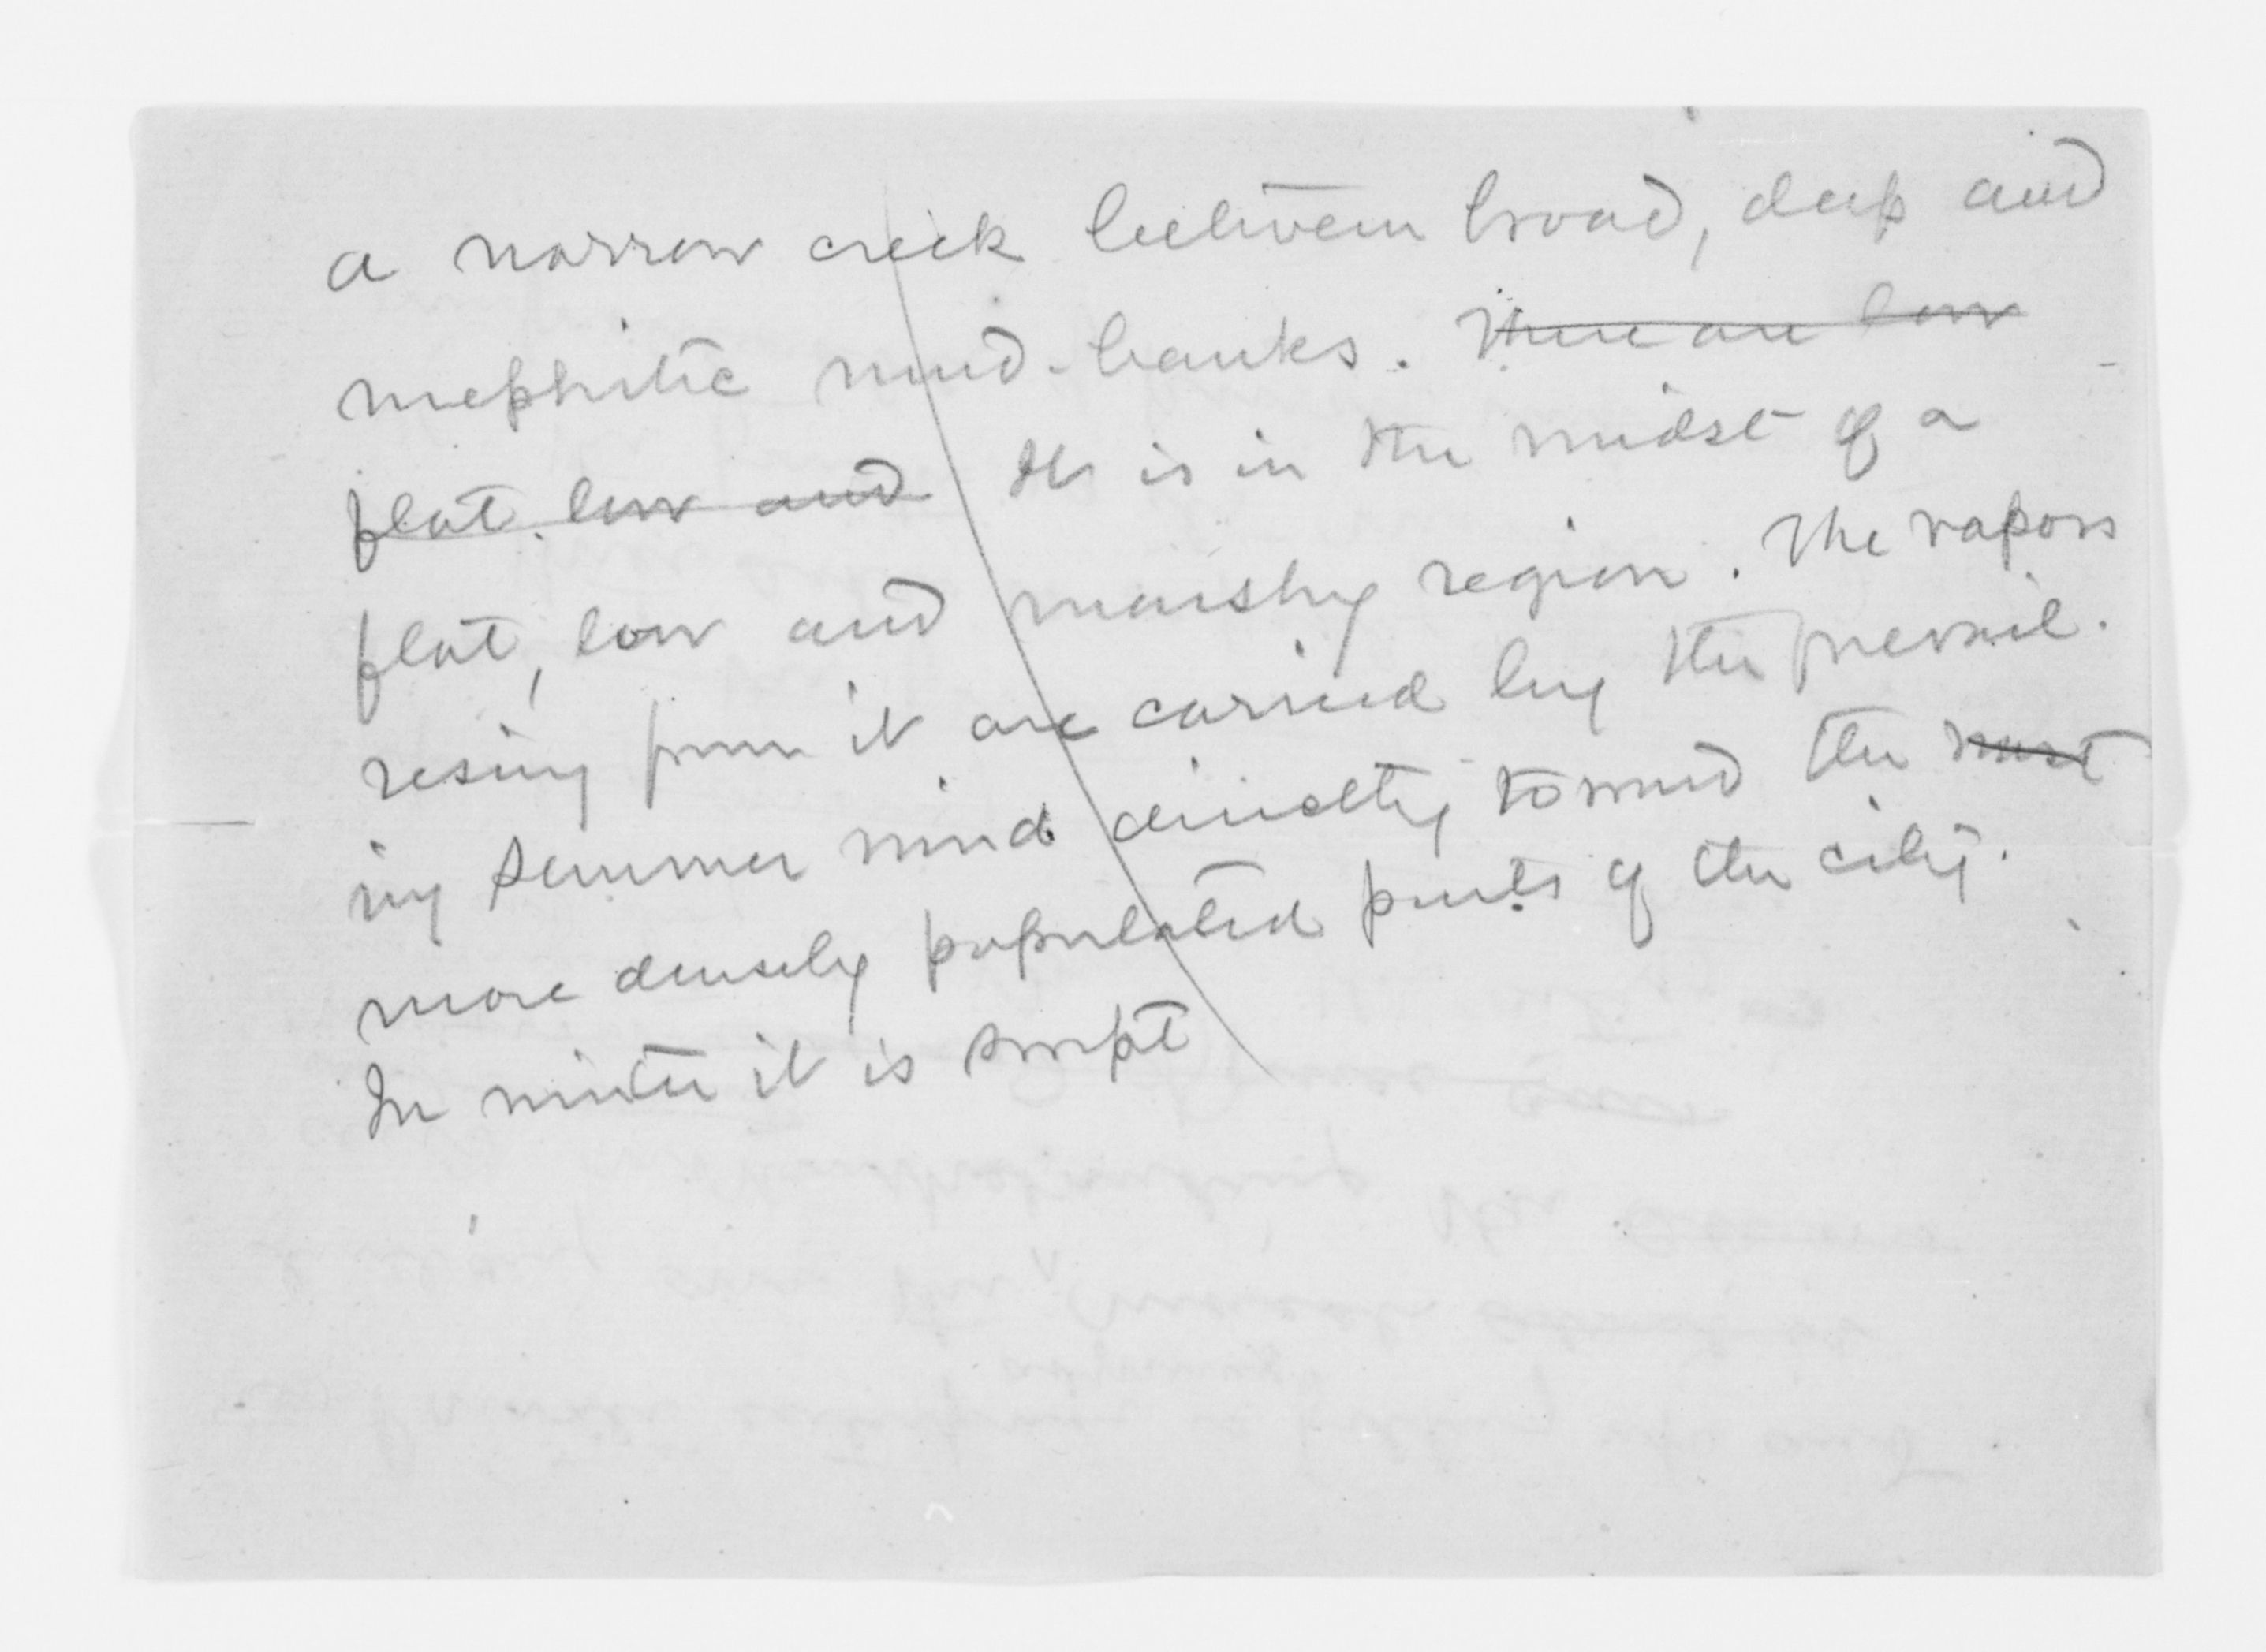 a narrow creek between broad, deep and
mephitic mud-banks. There are low
flat, low and It is in the midst of a
flat, low and marshy region. The vapors
rising from it are carried by the prevail-
ing summer wind directly toward the most
more densely populated parts of the city.
In winter it is swept